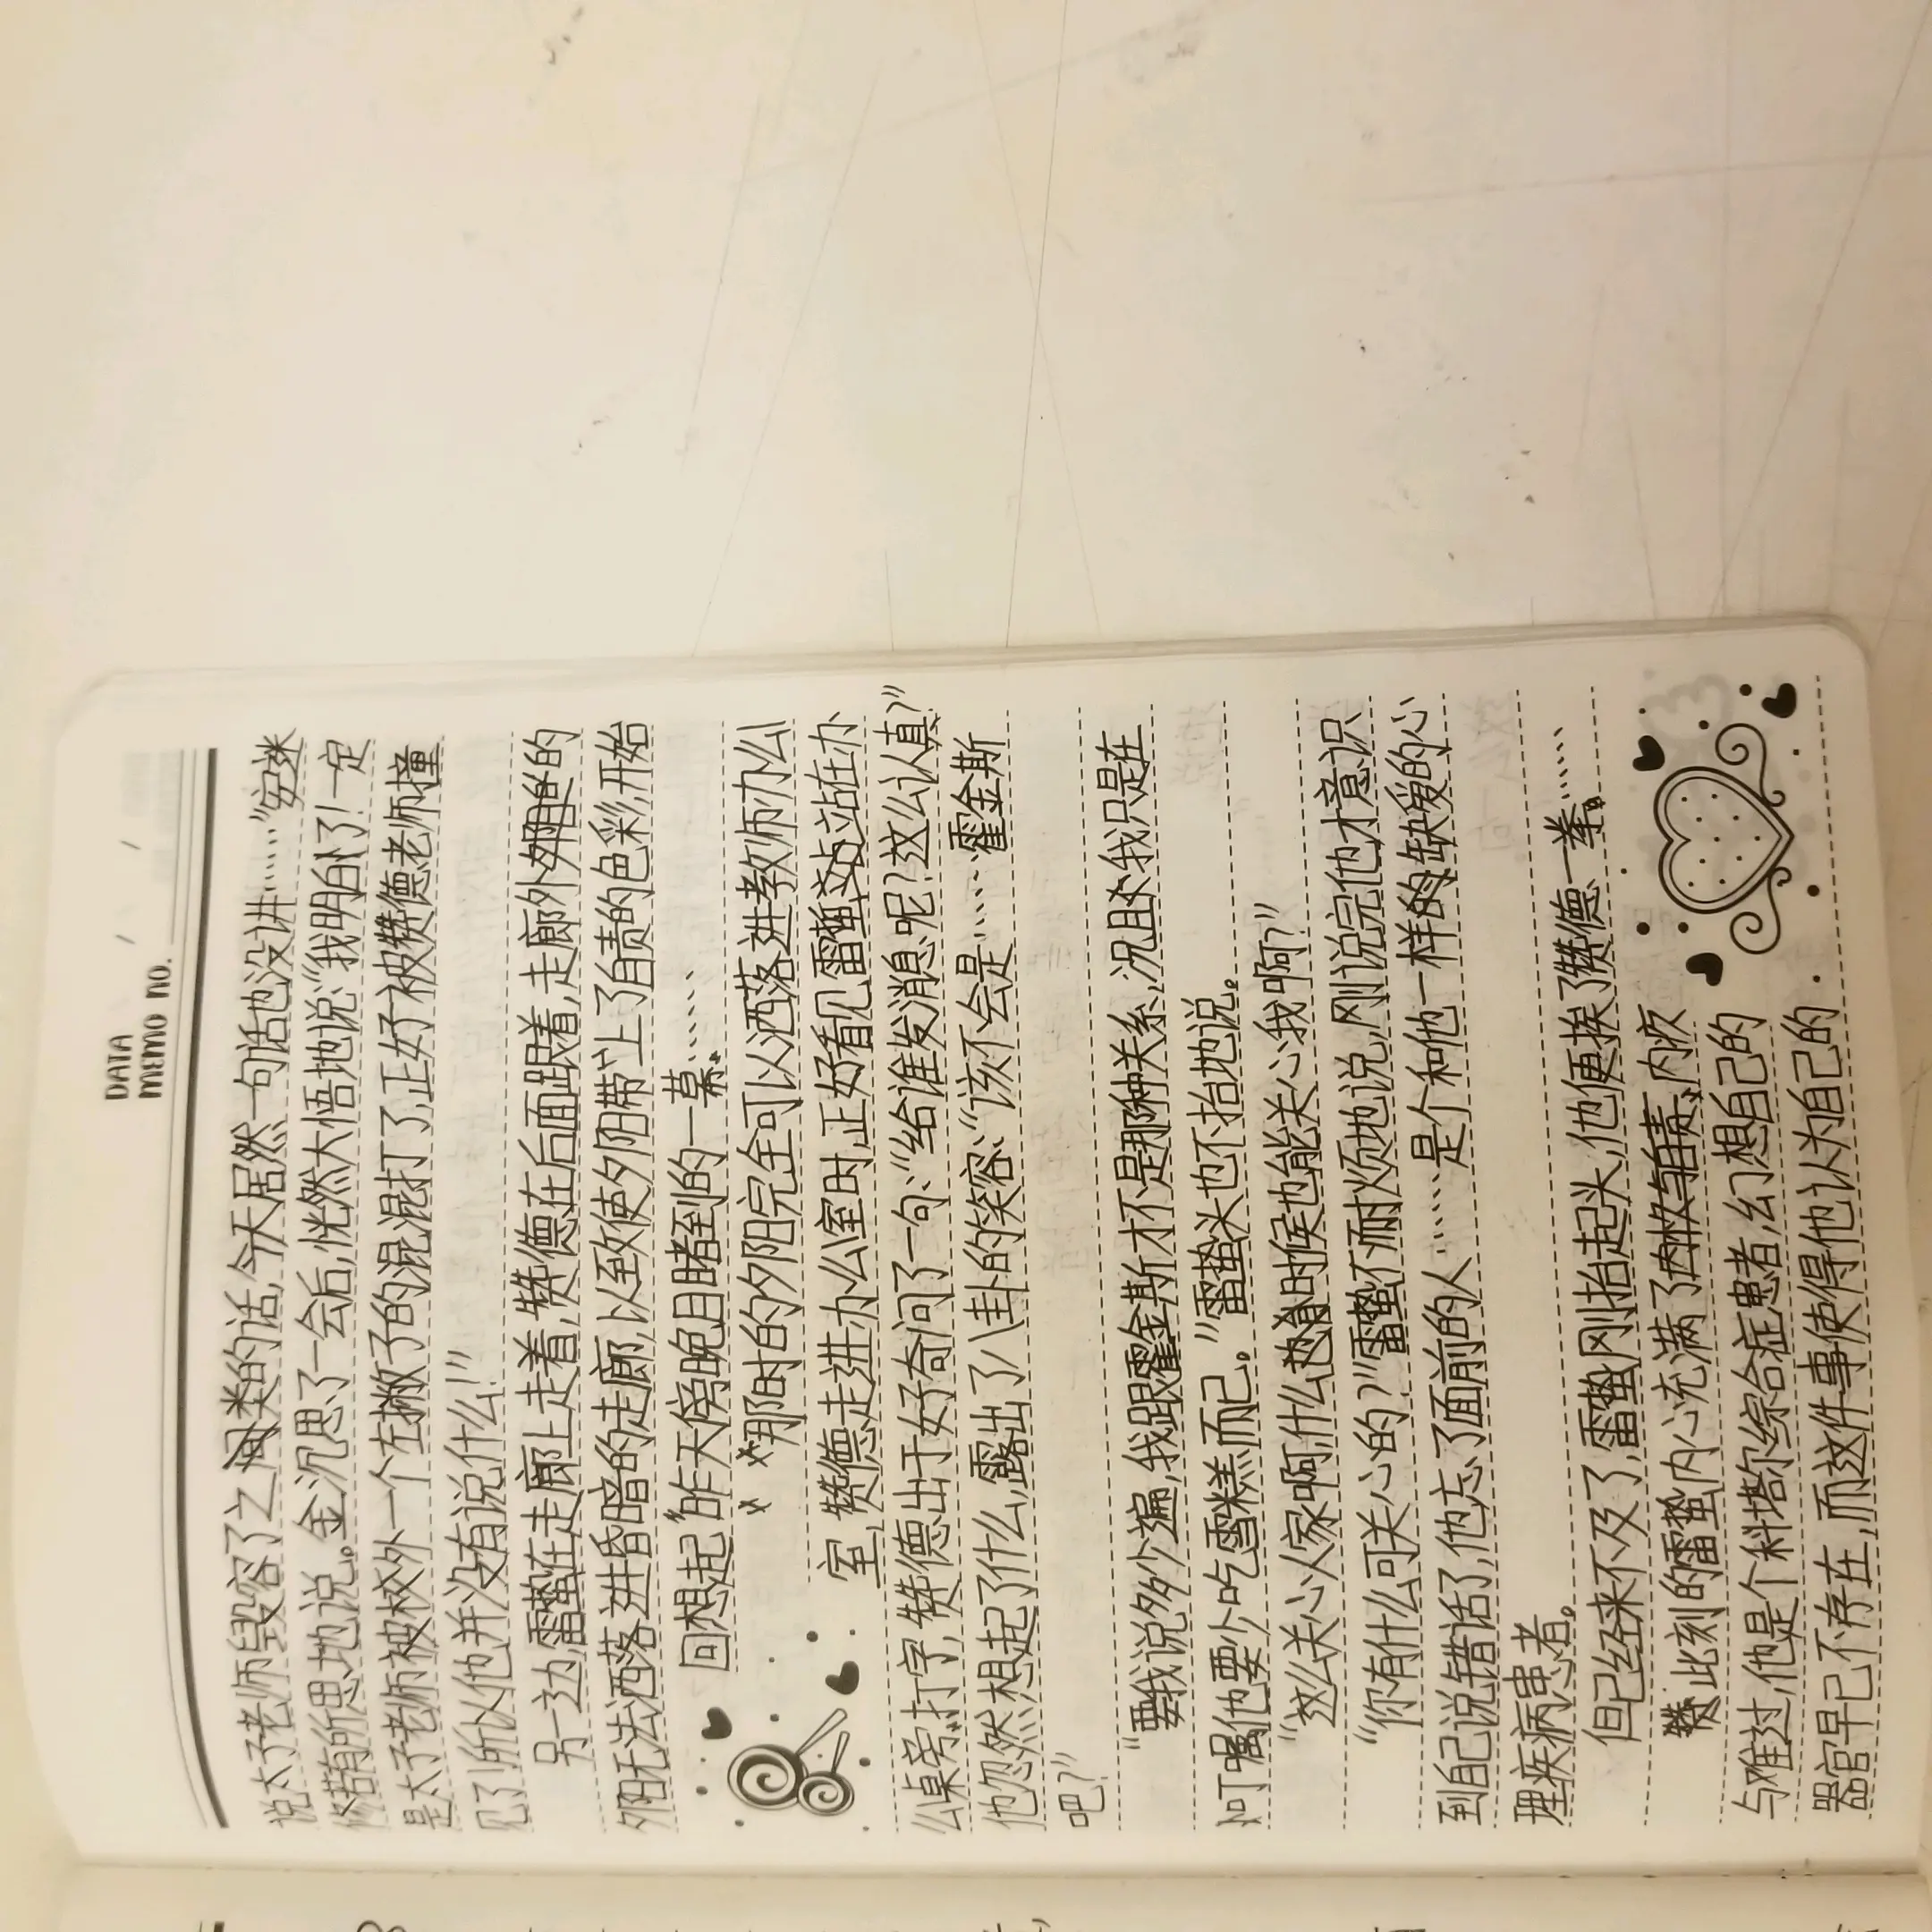 DATA
MEMO NO.
说太子老师毁容了之类的话,今天居然一句话也没讲……"安迷
修若有所思地说。金沉思了一会后,恍然大悟地说:"我明白了!一定
是太子老师被校外一个左撇子的混混打了,正好被赞德老师撞
见了!所以他并没有说什么!"
另一边,雷蛰在走廊上走着,赞德在后面跟着,走廊外夕阳的
夕阳无法洒落进昏暗的走廊,以致使夕阳带上了自责的色彩,开始
回想起昨天傍晚目睹到的一幕……
那时的夕阳完全可以洒落进教师办公
室,赞德走进办公室时,正好看见雷蛰站在办
公桌旁打字,赞德出于好奇问了一句:"给谁发消息呢?这么认真?"
他忽然想起了什么,露出了八卦的笑容:"该不会是……霍金斯
吧?"
"要我说多少遍,我跟霍金斯才不是那种关系,况且,我只是在
叮嘱他要少吃雪糕而已。"雷蛰头也不抬地说。
"这么关心人家啊,什么时候也能关心我啊?"
"你有什么可关心的?"雷蛰不耐烦地说,刚说完他才意识
到自己说错话了,他忘了面前的人……是个和他一样的缺爱的心
理疾病患者。
但已经来不及了,雷蛰刚抬起头,他便挨了赞德一拳……
此刻的雷蛰内心充满了自责,内疚
与难过,他是个科塔尔综合症患者,幻想自己的
器官早已不存在,而这件事使得他认为自己的